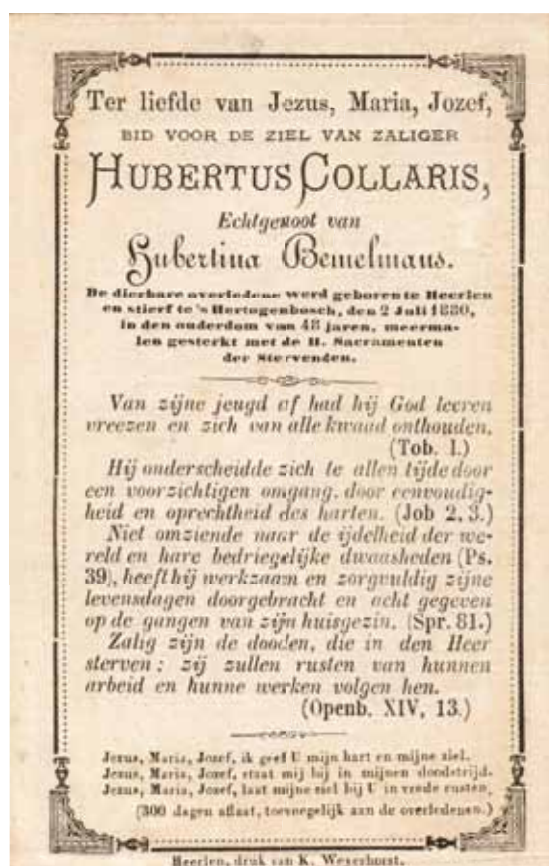 Ter liefde van Jezus, Maria, Jozef,
BID VOOR DE ZIEL VAN ZALIGER
HUBERTUS COLLARIS,
Echtgenoot van
Hubertina Bemelmans.
De dierbare overledene werd geboren te Heerlen
en stierf te 's Hertogenbosch, den 2 Juli 1880,
in den ouderdom van 48 jaren, meerma-
len gesterkt met de H. Sacramenten
der Stervenden.
Van zijne jeugd af had hij God leeren
vreezen en zich van alle kwaad onthouden.
(Tob. I.)
Hij onderscheidde zich te allen tijde door
een voorzichtigen omgang, door eenvoudig-
heid en oprechtheid des harten. (Job 2, 3.)
Niet omziende naar de ijdelheid der we-
reld en hare bedriegelijke dwaasheden (Ps.
39), heeft hij werkzaam en zorgvuldig zijne
levensdagen doorgebracht en acht gegeven
op de gangen van zijn huisgezin. (Spr. 81.)
Zalig zijn de dooden, die in den Heer
sterven; zij zullen rusten van hunnen
arbeid en hunne werken volgen hen.
(Openb. XIV, 13.)
Jezus, Maria, Jozef, ik geef U mijn hart en mijne ziel.
Jezus, Maria, Jozef, staat mij bij in mijnen doodstrijd.
Jezus, Maria, Jozef, laat mijne ziel bij U in vrede rusten.
(300 dagen aflaat, toevoegelijk aan de overledenen.)
Heerlen, druk van K. Weyerhorst.